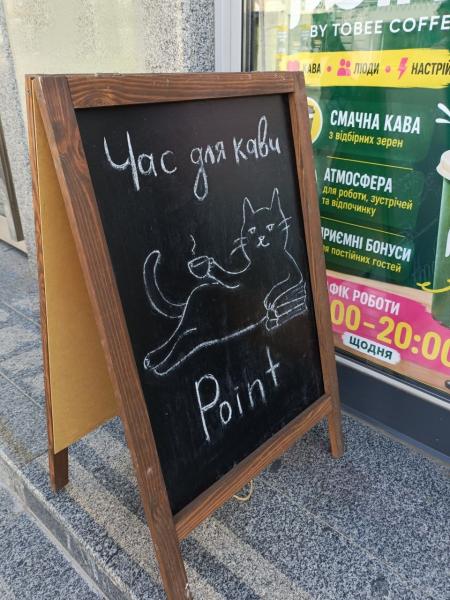 Час для кави
Point
BY TOBEE COFFEE
КАВА • ЛЮДИ • НАСТРІЙ
СМАЧНА КАВА
з відбірних зерен
АТМОСФЕРА
для роботи, зустрічей
та відпочинку
ПРИЄМНІ БОНУСИ
для постійних гостей
ГРАФІК РОБОТИ
:00–20:00
ЩОДНЯ